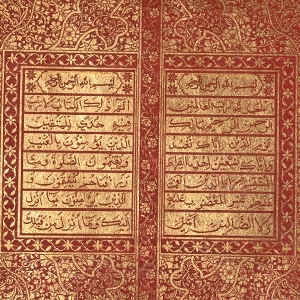 بسم الله الرحمن الرحيم
الحمد لله رب العالمين
الرحمن الرحيم مالك يوم
الدين اياك نعبد و
اياك نستعين اهدنا الصراط
المستقيم صراط الذين انعمت
عليهم غير المغضوب عليهم
ولا الضالين
بسم الله الرحمن الرحيم
الم ذلك الكتاب لا ريب
فيه هدى للمتقين
الذين يؤمنون بالغيب
ويقيمون الصلوة و
مما رزقناهم ينفقون
والذين يؤمنون بما انزل
اليك وما انزل من قبلك